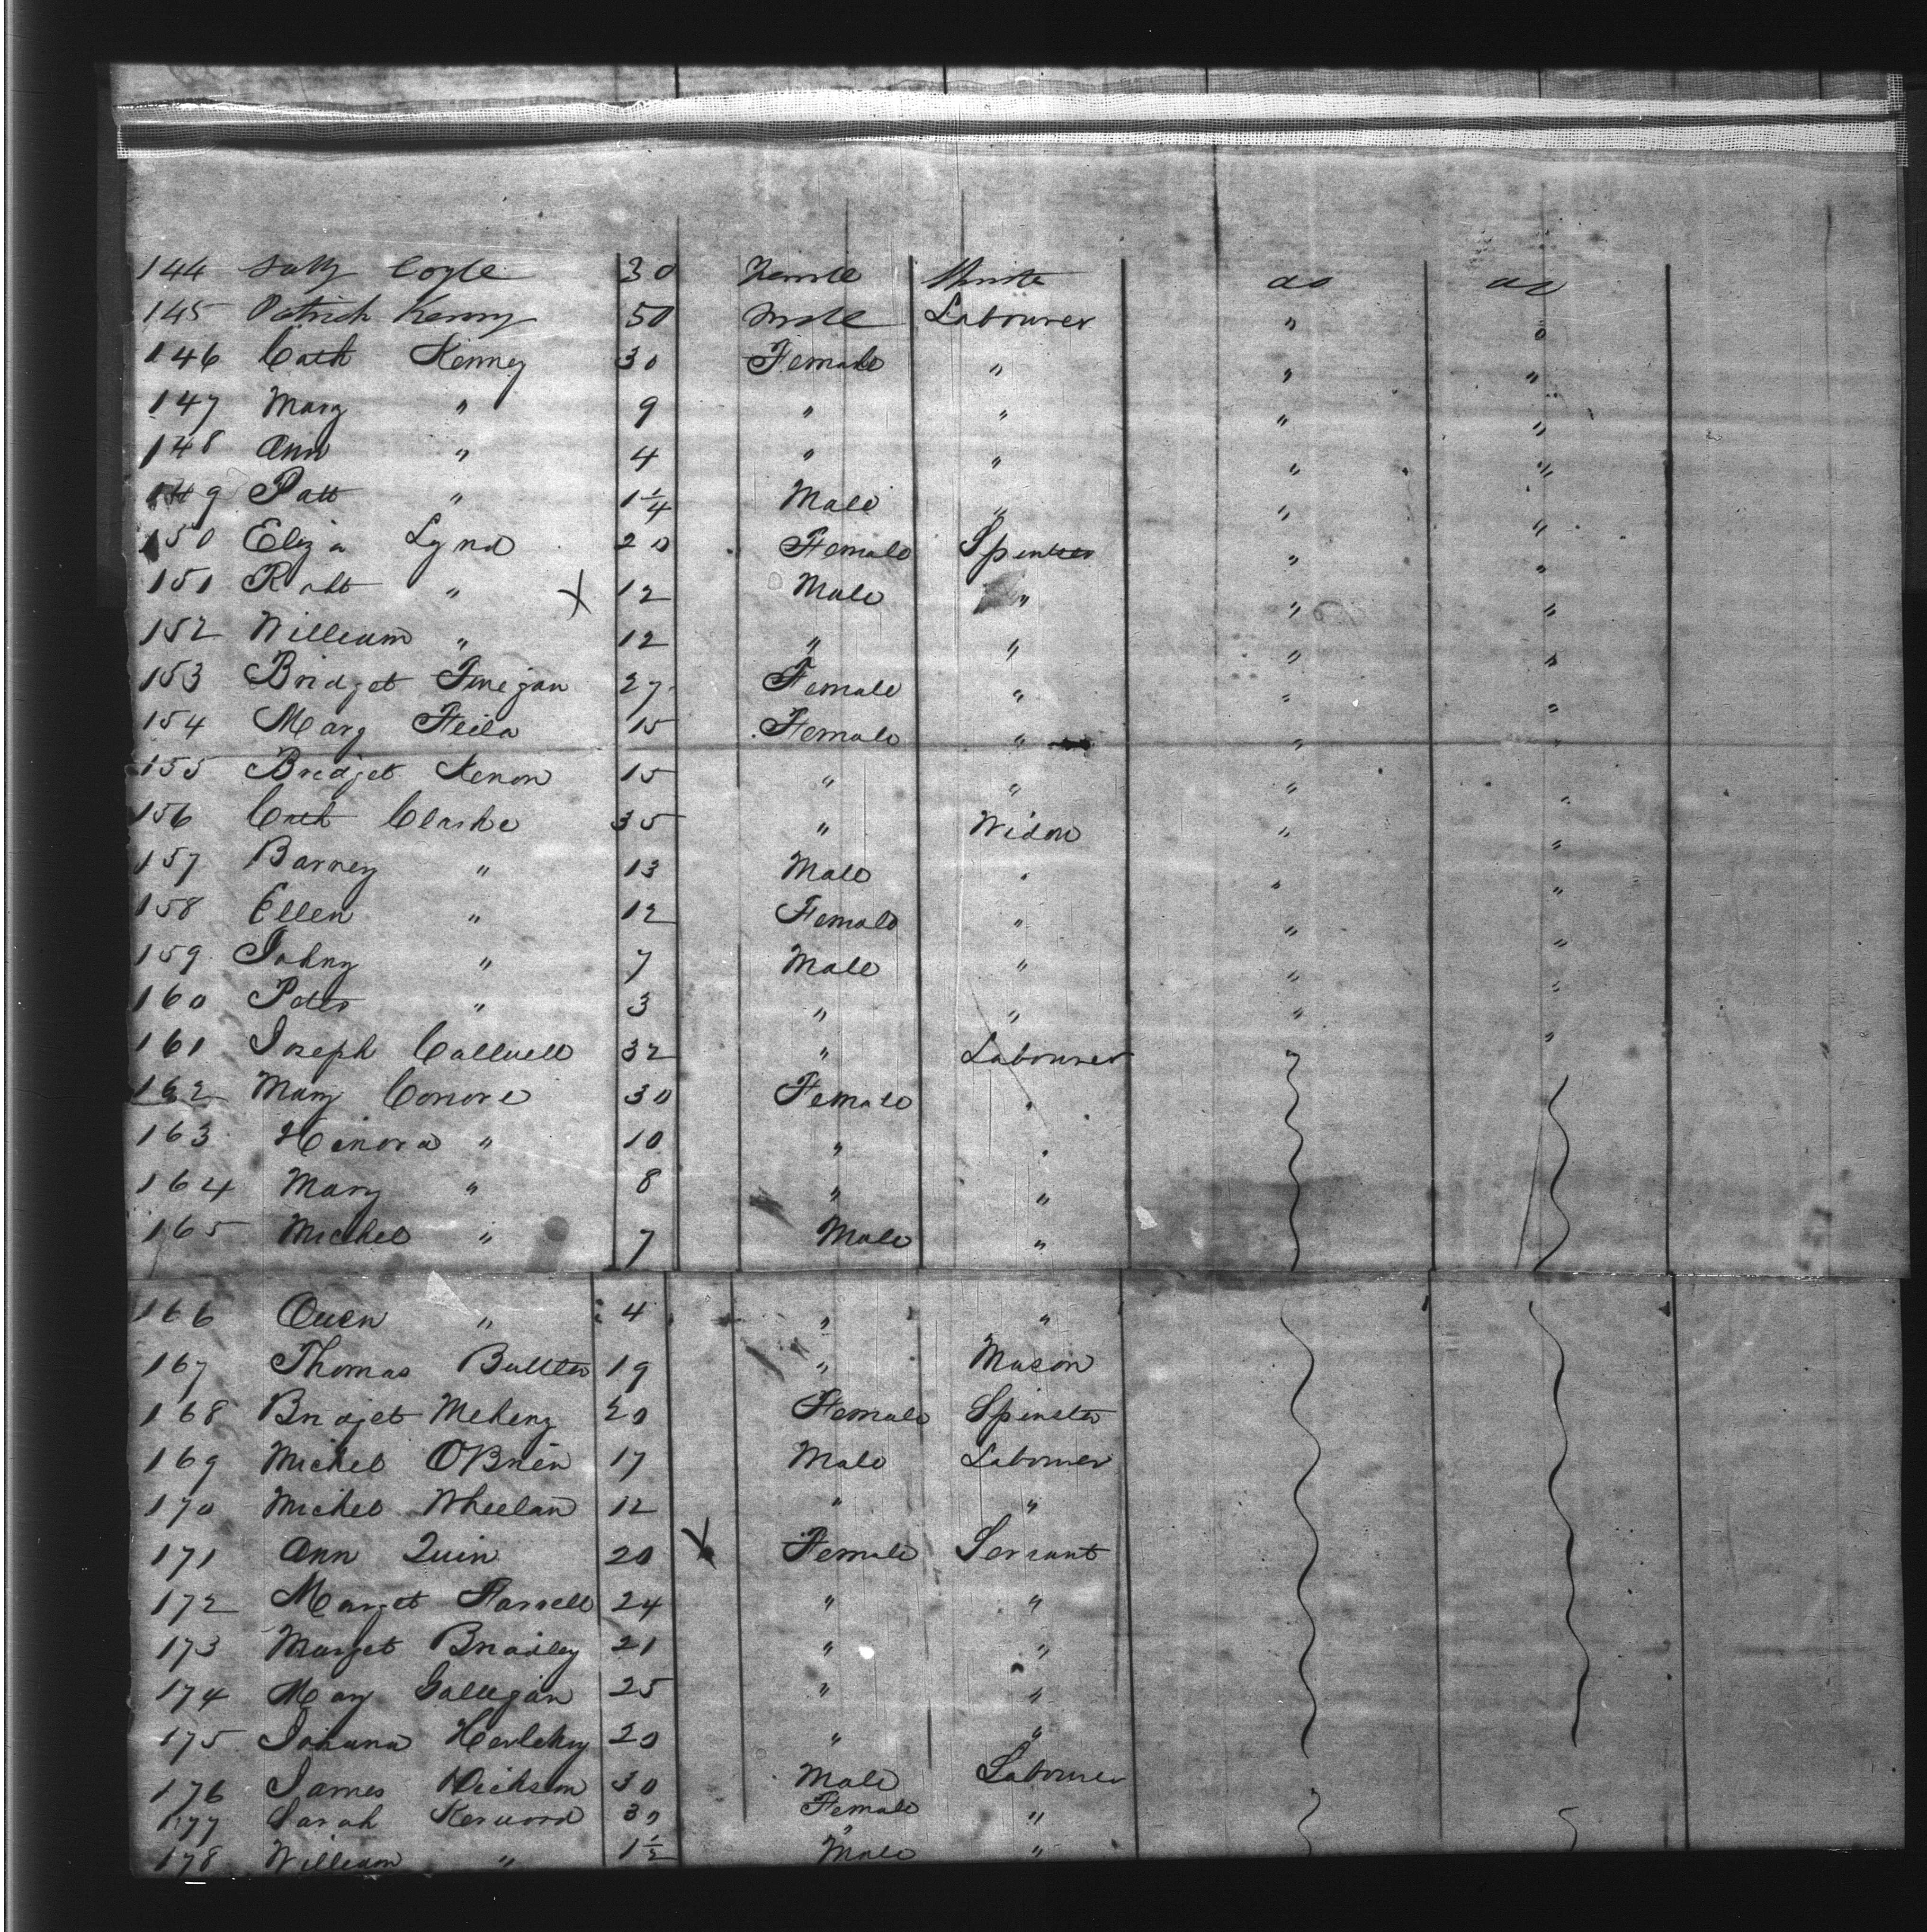 144 Sally Coyle 30 Female do do
145 Patrick Kenny 50 Male Labourer " "
146 Cath Kenney 30 Female " " "
147 Mary " 9 " " " "
148 Ann " 4 " " " "
149 Patt " 1 1/4 Male " " "
150 Eliza Lynd 20 Female Spinster " "
151 Robt " X 12 Male " " "
152 William " 12 " " " "
153 Bridget Finegan 27 Female " " "
154 Marg 15 Female " " "
155 Bredjet Kenon 15 " " " "
156 Cath Clarke 35 " Widow " "
157 Barney " 13 Male " " "
158 Ellen " 12 Female " " "
159 Johny " 7 Male " " "
160 Peter " 3 " " " "
161 Joseph Callwell 32 " Labourer " "
162 Mary Conore 30 Female "
163 Henora " 10 " "
164 Mary " 8 " "
165 Michel " 7 Male "
166 Owen " 4 " "
167 Thomas Buttler 19 " Mason
168 Bridjet Meheny 20 Female Spinster
169 Michel OBrien 17 Male Labourer
170 Michel Wheelan 12 " "
171 Ann Quin 20 X Female Servant
172 Marget Farrell 24 " "
173 Marget Bradley 21 " "
174 Mary Gallegan 25 " "
175 Johana Herlehy 20 " "
176 James Dickson 30 Male Labourer
177 Sarah Kerwood 30 Female "
178 William " 1 1/2 Male "